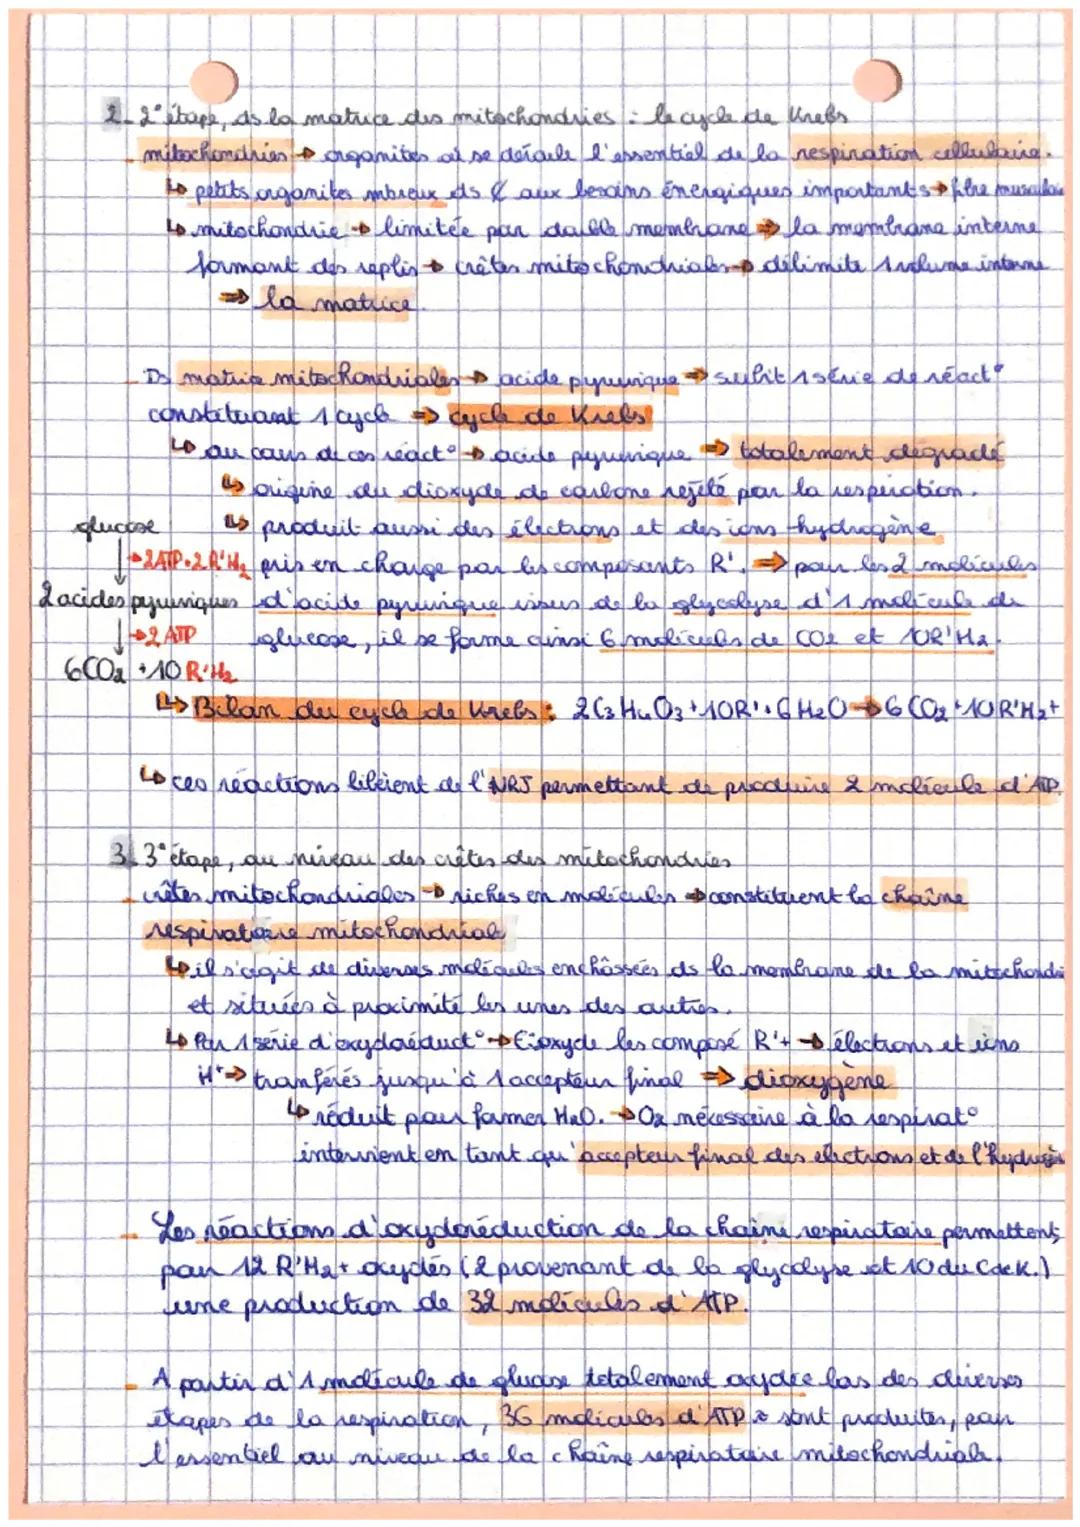 2. 2° étape, ds la matrice des mitochondries : le cycle de Krebs
- mitochondries → organites où se déroule l'essentiel de la respiration cellulaire.
↳ petits organites nbreux ds ₡ aux besoins énergiques importants → fibre musculaire
↳ mitochondrie → limitée par double membrane ⇒ la membrane interne
formant des replis → crêtes mitochondriales → délimite 1 volume interne
⇒ la matrice.
- Ds matrice mitochondriales → acide pyruvique ⇒ subit 1 série de réact°
constituant 1 cycle ⇒ cycle de Krebs
↳ au cours de ces réact° → acide pyruvique ⇒ totalement dégradé
↳ origine du dioxyde de carbone rejeté par la respiration.
glucose ↳ produit aussi des électrons et des ions hydrogène
↓ → 2ATP + 2R'H₂ pris en charge par les composants R'. ⇒ pour les 2 molécules
2 acides pyruviques d'acide pyruvique issus de la glycolyse d'1 molécule de
↓ → 2 ATP glucose, il se forme ainsi 6 molécules de CO₂ et 10R'H₂.
6CO₂ + 10 R'H₂
↳ Bilan du cycle de Krebs : 2C₃H₄O₃ + 10R' + 6H₂O → 6CO₂ + 10R'H₂+
↳ ces réactions libèrent de l'NRJ permettant de produire 2 molécule d'ATP.
3. 3° étape, au niveau des crêtes des mitochondries
- crêtes mitochondriales → riches en molécules → constituent la chaîne
respiratoire mitochondriale
↳ il s'agit de diverses molécules enchâssées ds la membrane de la mitochondrie
et situées à proximité les unes des autres.
↳ Par 1 série d'oxydoréduct° → oxyde les composé R'+ → électrons et ions
H⁺ ⇒ tranférés jusqu'à 1 accepteur final ⇒ dioxygène
↳ réduit pour former H₂O. → O₂ nécessaire à la respirat°
intervient en tant qu'accepteur final des électrons et de l'hydrogène
- Les réactions d'oxydoréduction de la chaîne respiratoire permettent,
pour 12 R'H₂+ oxydés (2 provenant de la glycolyse et 10 du CdeK.)
une production de 32 molécules d'ATP.
- A partir d'1 molécule de glucose totalement oxydée lors des diverses
étapes de la respiration, 36 molécules d'ATP sont produites, pour
l'essentiel au niveau de la chaîne respiratoire mitochondriale.